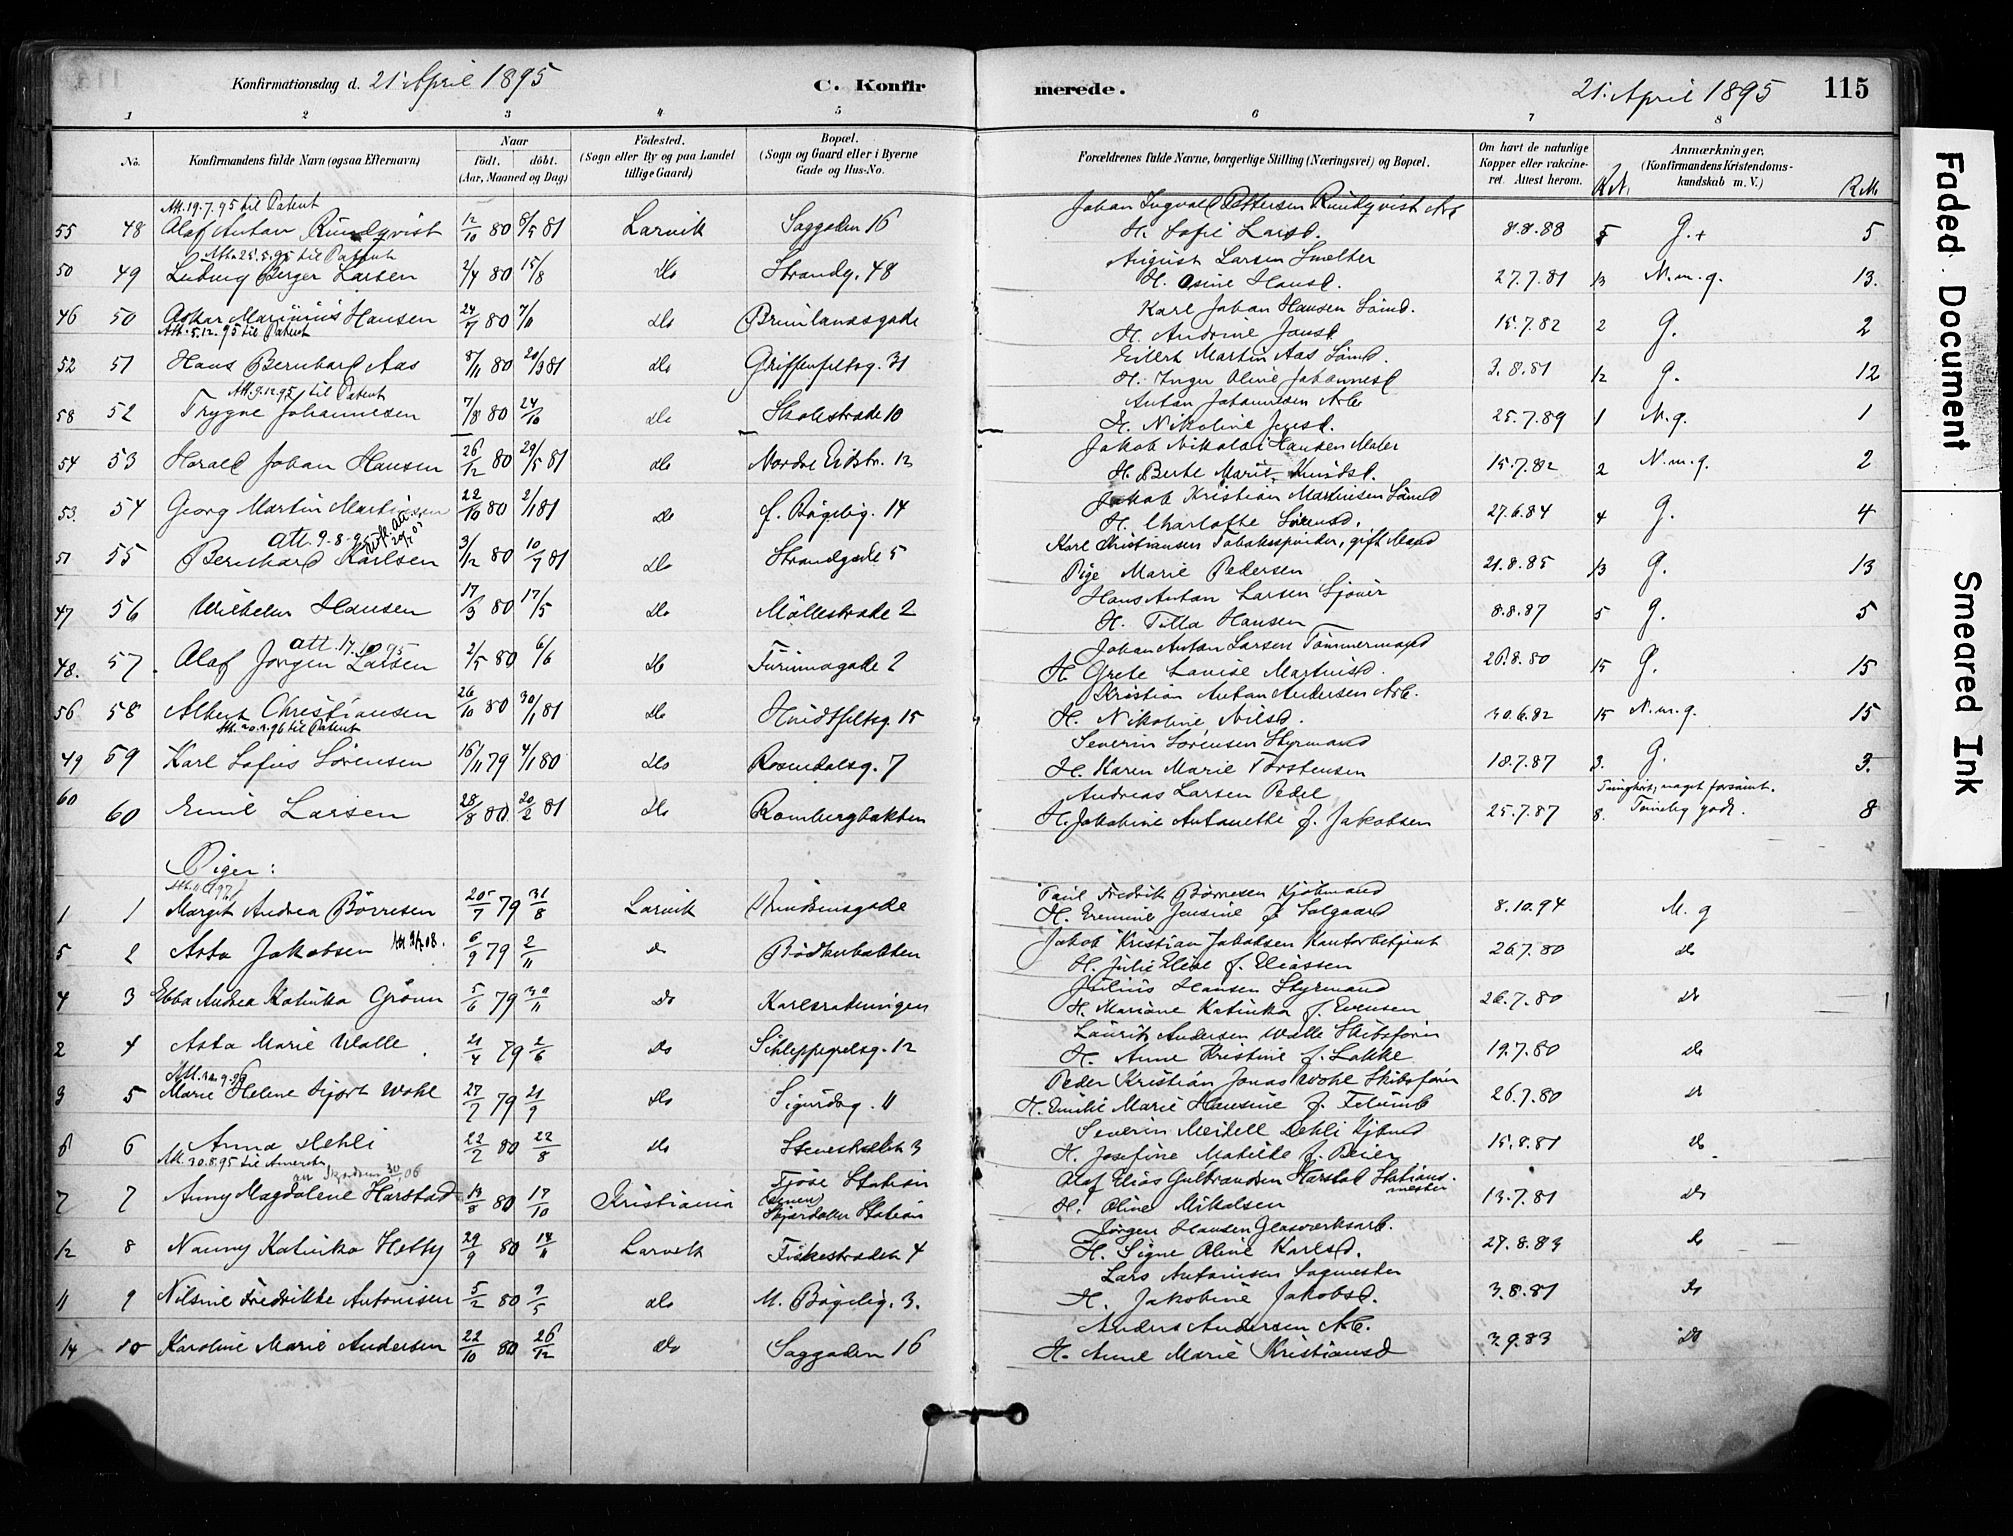 Konfirmationsdag d. 21. April 1895
C. Konfir
merede.
21. April 1895
115
1 2 3 4 5 6 7 8
No.
Konfirmandens fulde Navn (ogsaa Efternavn)
Naar
født. døbt.
(Aar, Maaned og Dag)
Fødested.
(Sogn eller By og paa Landet
tillige Gaard.)
Bopæl.
(Sogn og Gaard eller i Byerne
Gade og Hus-No.
Forældrenes fulde Navne, borgerlige Stilling (Næringsvei) og Bopæl.
Om havt de naturlige
Kopper eller vakcine-
ret. Attest herom.
K.N.
Anmærkninger.
(Konfirmandens Kristendoms-
kundskab m. V.)
R.N.
Att. 19.7.95 til Patent
55 48 Olaf Anton Rundqvist 12/10 80 8/5 81 Larvik Saggaden 16
Johan Ingvald Pettersen Rundqvist Arb
H. Sofie Larsd. 8.8.88 5 G.+ 5
Att. 25.5.95 til Patent
50 49 Ludvig Berger Larsen 2/4 80 15/8 do Strandg. 48
August Larsen Smelter
H. Osine Hansd. 27.7.81 13 N.m.g. 13.
46 50 Oskar Marinius Hansen 24/7 80 7/11 do Brunlanesgade
Att. 5.12.95 til Patent
Karl Johan Hansen Sømd.
H. Andrine Jansd. 15.7.82 2 G. 2
52 51 Hans Bernhard Aas 8/11 80 20/3 81 do Griffenfeltsg. 31
Eilert Martin Aas Sømd.
H. Inger Oline Johannesd 3.8.81 12 G. 12
Att. 9.12.95 til Patent
58 52 Trygve Johannesen 7/8 80 24/10 do Skolestræde 10
Anton Johannesen Arb
H. Nikoline Jensd. 25.7.89 1 M.g. 1
54 53 Harald Johan Hansen 26/12 80 29/5 81 do Nordre Eidstr. 12
Jakob Nikolai Hansen Maler
H. Berte Marie Knudsd. 15.7.82 2 N.m.g. 2
53. 54 Georg Martin Martinsen 22/10 80 2/1 81 do f. Bøgelig. 14
Jakob Kristian Martinsen Sømd
H. Charlotte Sørensd. 27.6.84 4 G. 4
att. 9.8.95
51 55 Bernhard Karlsen 3/12 80 10/7 81 do Strandgade 5
Karl Christiansen Tobaksspinder, gift Mand
Pige Marie Pedersen 21.8.85 13 G. 13
47 56 Wilhelm Hansen 17/3 80 17/5 do Møllestræde 2
Hans Anton Larsen Sjøver
H. Tilla Hansen 8.8.87 5 G. 5
att. 17.10.95
48. 57. Olaf Jørgen Larsen 2/5 80 6/6 do Furumogade 2
Johan Anton Larsen Tømmermand
H. Grete Lovise Martinsd. 26.8.80 15 G. 15
56 58 Albert Christiansen 26/10 80 30/1 81 do Hvidtfeltsg. 15
Att. 20.2.96 til Patent
Kristian Anton Andersen Arb.
H. Nikoline Nilsd. 30.6.82 15 N.m.g. 15
49 59 Karl Sofus Sørensen 16/11 79 4/1 80 do Rosendalsg. 7
Severin Sørensen Styrmand
H. Karen Marie Torstensen 18.7.87 3. G. 3.
60 60 Emil Larsen 28/8 80 20/2 81 do Rombergbakken
Andreas Larsen Pedel
H. Jakobine Antonette f. Jakobsen 25.7.87 8. Tunghørt, meget forsømt. Temelig godt. 8
Piger:
1 1 Margit Andrea Børresen 20/7 79 31/8 Larvik
Paul Fredrik Børresen Kjøbmand
H. Eremine Jensine f. Solgaard 8.10.94 M.g
5 2 Asta Jakobsen 6/9 79 2/11 do Bødkerbakken
Jakob Kristian Jakobsen Kontorbetjent
H. Julie Elise f. Eliassen 26.7.80 do
4 3 Ebba Andrea Katinka Grønn 5/6 79 30/11 do
Julius Hansen Styrmand
H. Mariane Katinka f. Evensen 26.7.80 do
2 4 Asta Marie Walle. 21/4 79 2/6 do Schleppegrelsg. 12
Laurits Andersen Walle Skibsfører
H. Anne Kristine f. Løkke 19.7.80 do
3 5 Marie Helene Hjort Wohl 27/7 79 21/9 do Sigurdsg. 11
Peder Kristian Jonas Wohl Skibsfører
H. Emilie Marie Hansine f. Felumb 26.7.80 do
6 6 Anna Dehli 22/2 80 22/8 do
Att. 30.8.95 til Amerika
Severin Meidell Dehli Kjbmd
H. Josefine Matilde f. Beier 15.8.81 do.
7 7 Anny Magdalene Harstad 14/8 80 17/10 Kristiania Tjøse Station
Skjærdalen Station
Olaf Elias Gulbrandsen Harstad Stationsmester
H. Oline Mikalsen 13.7.81 do
12 8 Nanny Katinka Hetty 29/9 80 14/11 Larvik Fiskestrædet 4
Jørgen Hansen Glasværksarb.
H. Signe Oline Karlsd. 27.8.83 do
11 9 Nilsine Fredrikke Antonisen 5/2 80 9/5 do M. Bøgelig. 3.
Lars Antonisen Sagmester
H. Jakobine Jakobsd. 3.8.81 do
14 10 Karoline Marie Andersen 22/10 80 26/12 do Saggaden 16
Anders Andersen Arb.
H. Anne Marie Kristiansd 3.9.83 do
Faded Document
Smeared Ink